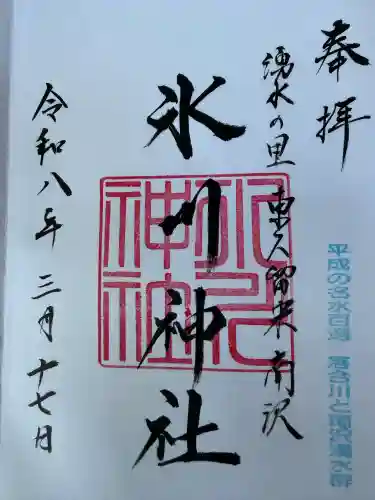 奉拝
湧水の里 東久留米 南沢
平成の名水百選 落合川と南沢湧水群
氷川神社
氷川神社
令和八年 三月 十七日